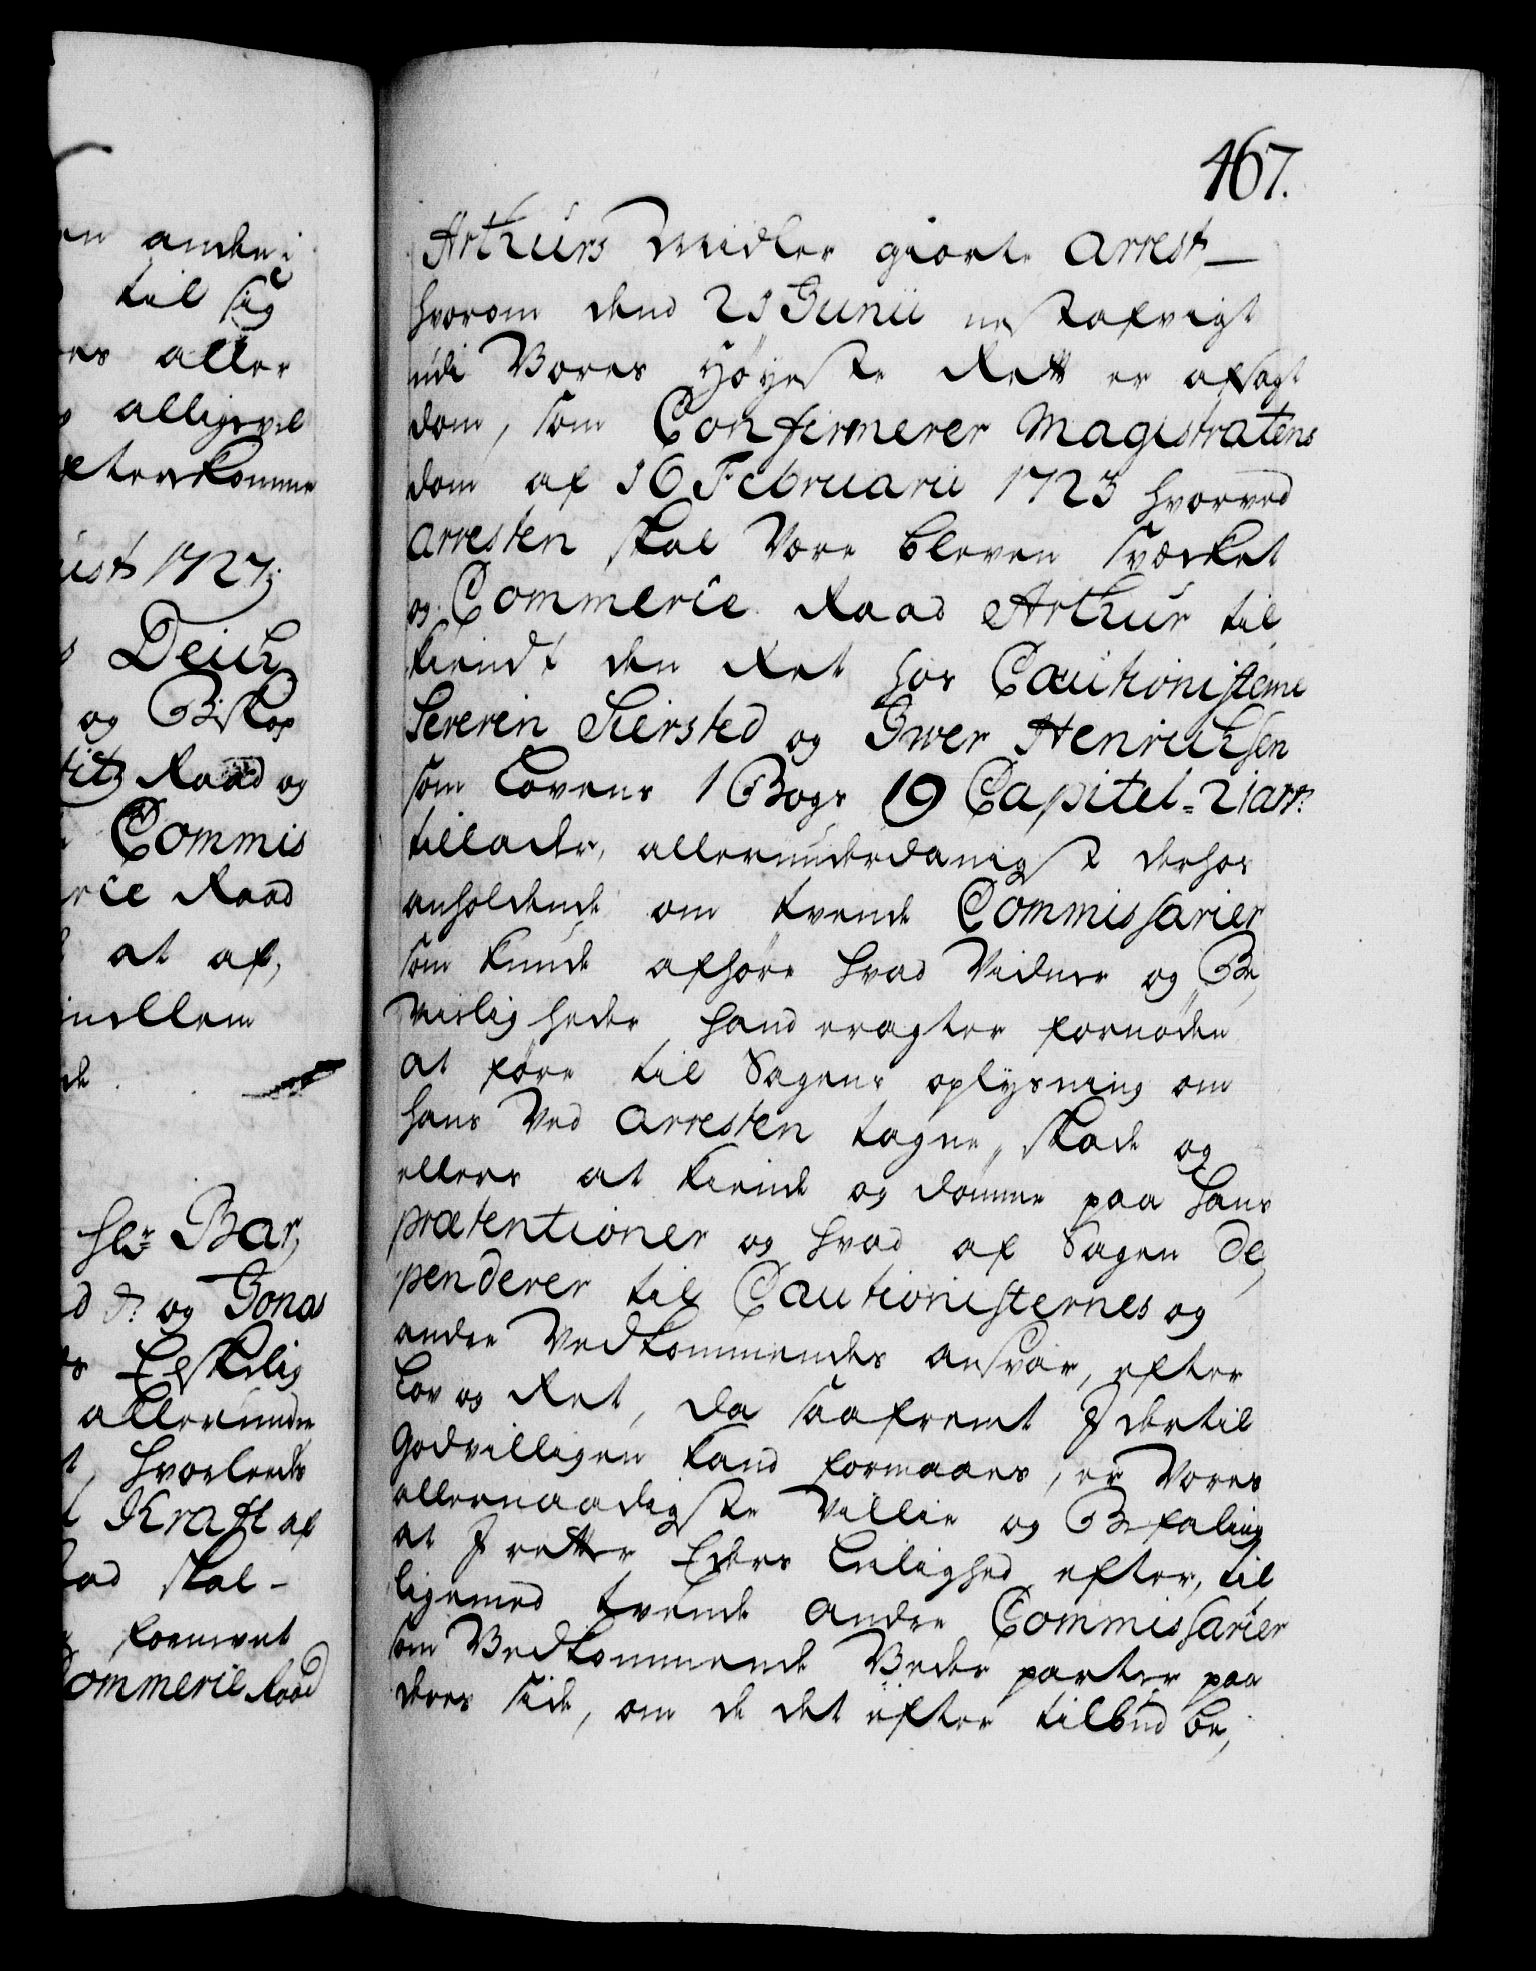 467.
Arthurs Midler giorte Arrest,
hvorom dend 21 Junii nestafvigt
udi Vores Høyeste Rett er afsagt
dom, som Confirmerer Magistratens
dom af 16 Februarii 1723 hvorved
Arresten skal være bleven svækket
og Commerce Raad Arthur til,
kiendt den Ret hos Cautionisterne
Severin Seirsted og Iwer Henrichsen
som Lovens 1 Bogs 19 Capitel 21 art:
tillader, allerunderdanigst derhos
anholdende om tvende Commissarier
som kunde afhøre hvad Vidner og Be,
viisligheder hand eragter fornøden
at føre til Sagens oplysning om
hans ved Arresten tagne skade og
ellers at kiende og dømme paa hans
prætentioner og hvad af Sagen de,
penderer til Cautionisternes og
andre Vedkommendes ansvar, efter
Lov og Ret, da saafremt I dertil
godvilligen kand formaaes, er Vores
allernaadigste Villie og Befaling
at I retter Eders Leilighed efter, til
ligemed tvende andre Commissarier
som Vedkommende Veder parter paa
deres side, om de det efter tilbud be,
en anden
til sig
es aller
alligevel
efterkomme
ust 1727.
Deich
og Biskop
titz Raad og
Commis
rce Raad
at af,
imellem
de
Hr Bar,
d. og Jonas
Eskelig
allerunder
t, hvorledes
Kraft af
ad skal
formeent
Commerce Raad